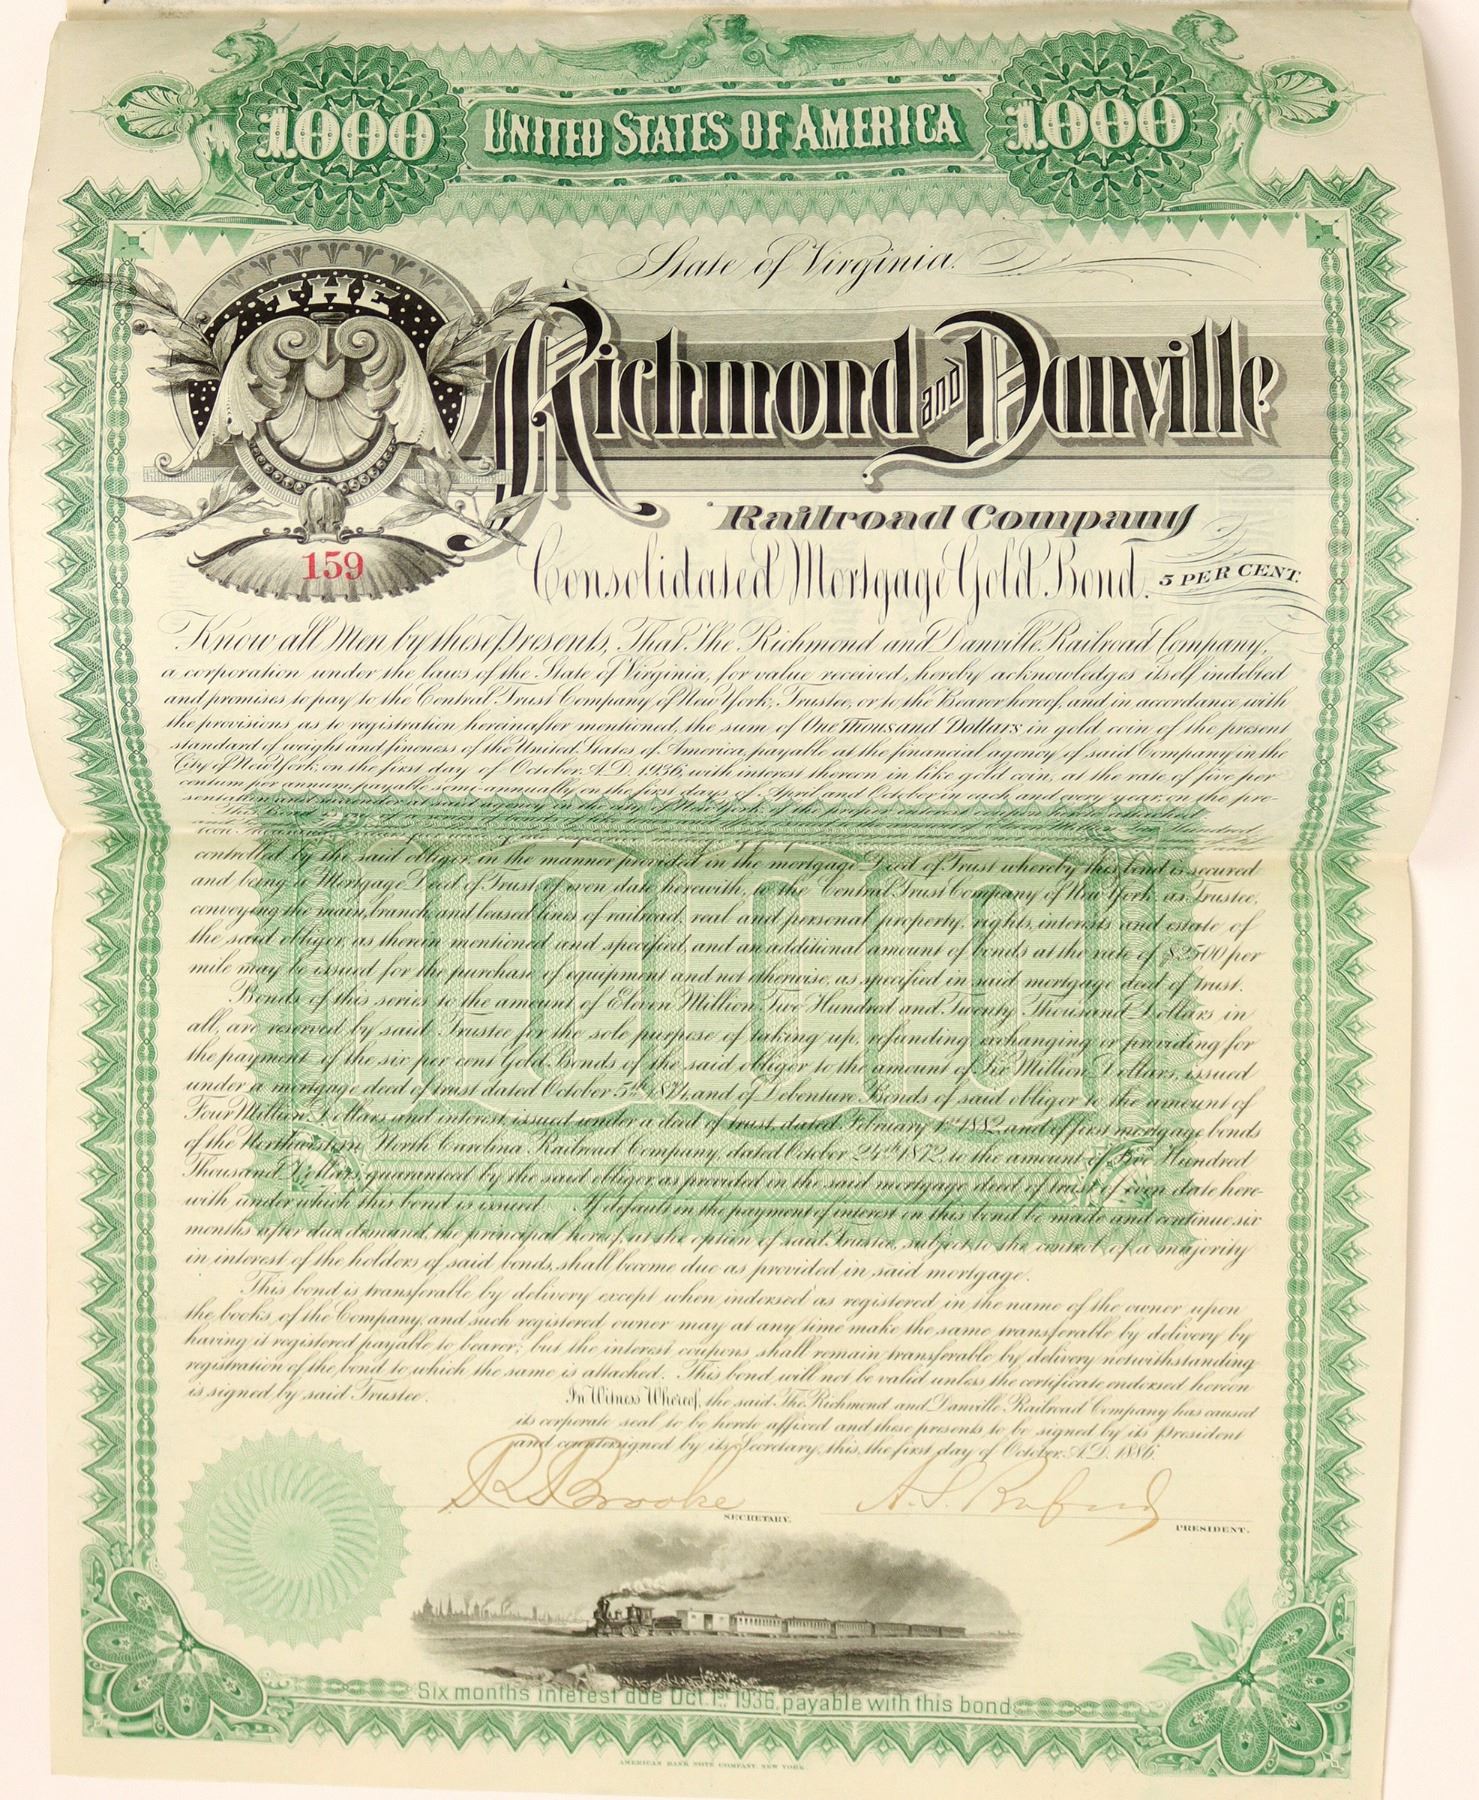 1000 UNITED STATES OF AMERICA 1000
State of Virginia.
THE
Richmond and Danville
Railroad Company
159
Consolidated Mortgage Gold Bond. 5 PER CENT.
Know all Men by these Presents, That The Richmond and Danville Railroad Company,
a corporation under the laws of the State of Virginia, for value received, hereby acknowledges itself indebted
and promises to pay to the Central Trust Company of New York, Trustee, or to the Bearer hereof, and in accordance with
the provisions as to registration hereinafter mentioned, the sum of One Thousand Dollars in gold coin of the present
standard of weight and fineness of the United States of America, payable at the financial agency of said Company in the
City of New York, on the first day of October, A.D. 1936, with interest thereon in like gold coin, at the rate of five per
centum per annum, payable semi-annually on the first days of April and October in each and every year, on the pre-
sentation and surrender at said agency in the city of New York, of the proper interest coupon hereto attached.
This Bond is one of
controlled by the said obligor, in the manner provided in the mortgage Deed of Trust whereby this bond is secured
and being a Mortgage Deed of Trust of even date herewith, to the Central Trust Company of New York, as Trustee,
conveying the main, branch, and leased lines of railroad, real and personal property, rights, interests and estate of
the said obligor, as therein mentioned and specified, and an additional amount of bonds at the rate of $2500 per
mile may be issued for the purchase of equipment and not otherwise, as specified in said mortgage deed of trust.
Bonds of this series to the amount of Eleven Million Two Hundred and Twenty Thousand Dollars in
all, are reserved by said Trustee for the sole purpose of taking up, refunding exchanging or providing for
the payment of the six per cent Gold Bonds of the said obligor to the amount of Six Million Dollars, issued
under a mortgage deed of trust dated October 5th 1874, and of Debenture Bonds of said obligor to the amount of
Four Million Dollars and interest, issued under a deed of trust dated February 1st 1882, and of first mortgage bonds
of the Northwestern North Carolina Railroad Company, dated October 24th 1872, to the amount of Five Hundred
Thousand Dollars, guaranteed by the said obligor, as provided in the said mortgage deed of trust of even date here-
with under which this bond is issued. If default in the payment of interest on this bond be made and continue six
months after due demand, the principal hereof, at the option of said Trustee, subject to the control of a majority
in interest of the holders of said bonds, shall become due as provided in said mortgage.
This bond is transferable by delivery except when indorsed as registered in the name of the owner upon
the books of the Company, and such registered owner may at any time make the same transferable by delivery by
having it registered payable to bearer; but the interest coupons shall remain transferable by delivery notwithstanding
registration of the bond to which the same is attached. This bond will not be valid unless the certificate endorsed hereon
is signed by said Trustee.
In Witness Whereof, the said The Richmond and Danville Railroad Company has caused
its corporate seal to be hereto affixed and these presents to be signed by its President
and countersigned by its Secretary, this, the first day of October, A.D. 1886.
R Brooke
SECRETARY.
A. S. Buford
PRESIDENT.
Six months interest due Oct. 1st 1936, payable with this bond
AMERICAN BANK NOTE COMPANY, NEW YORK